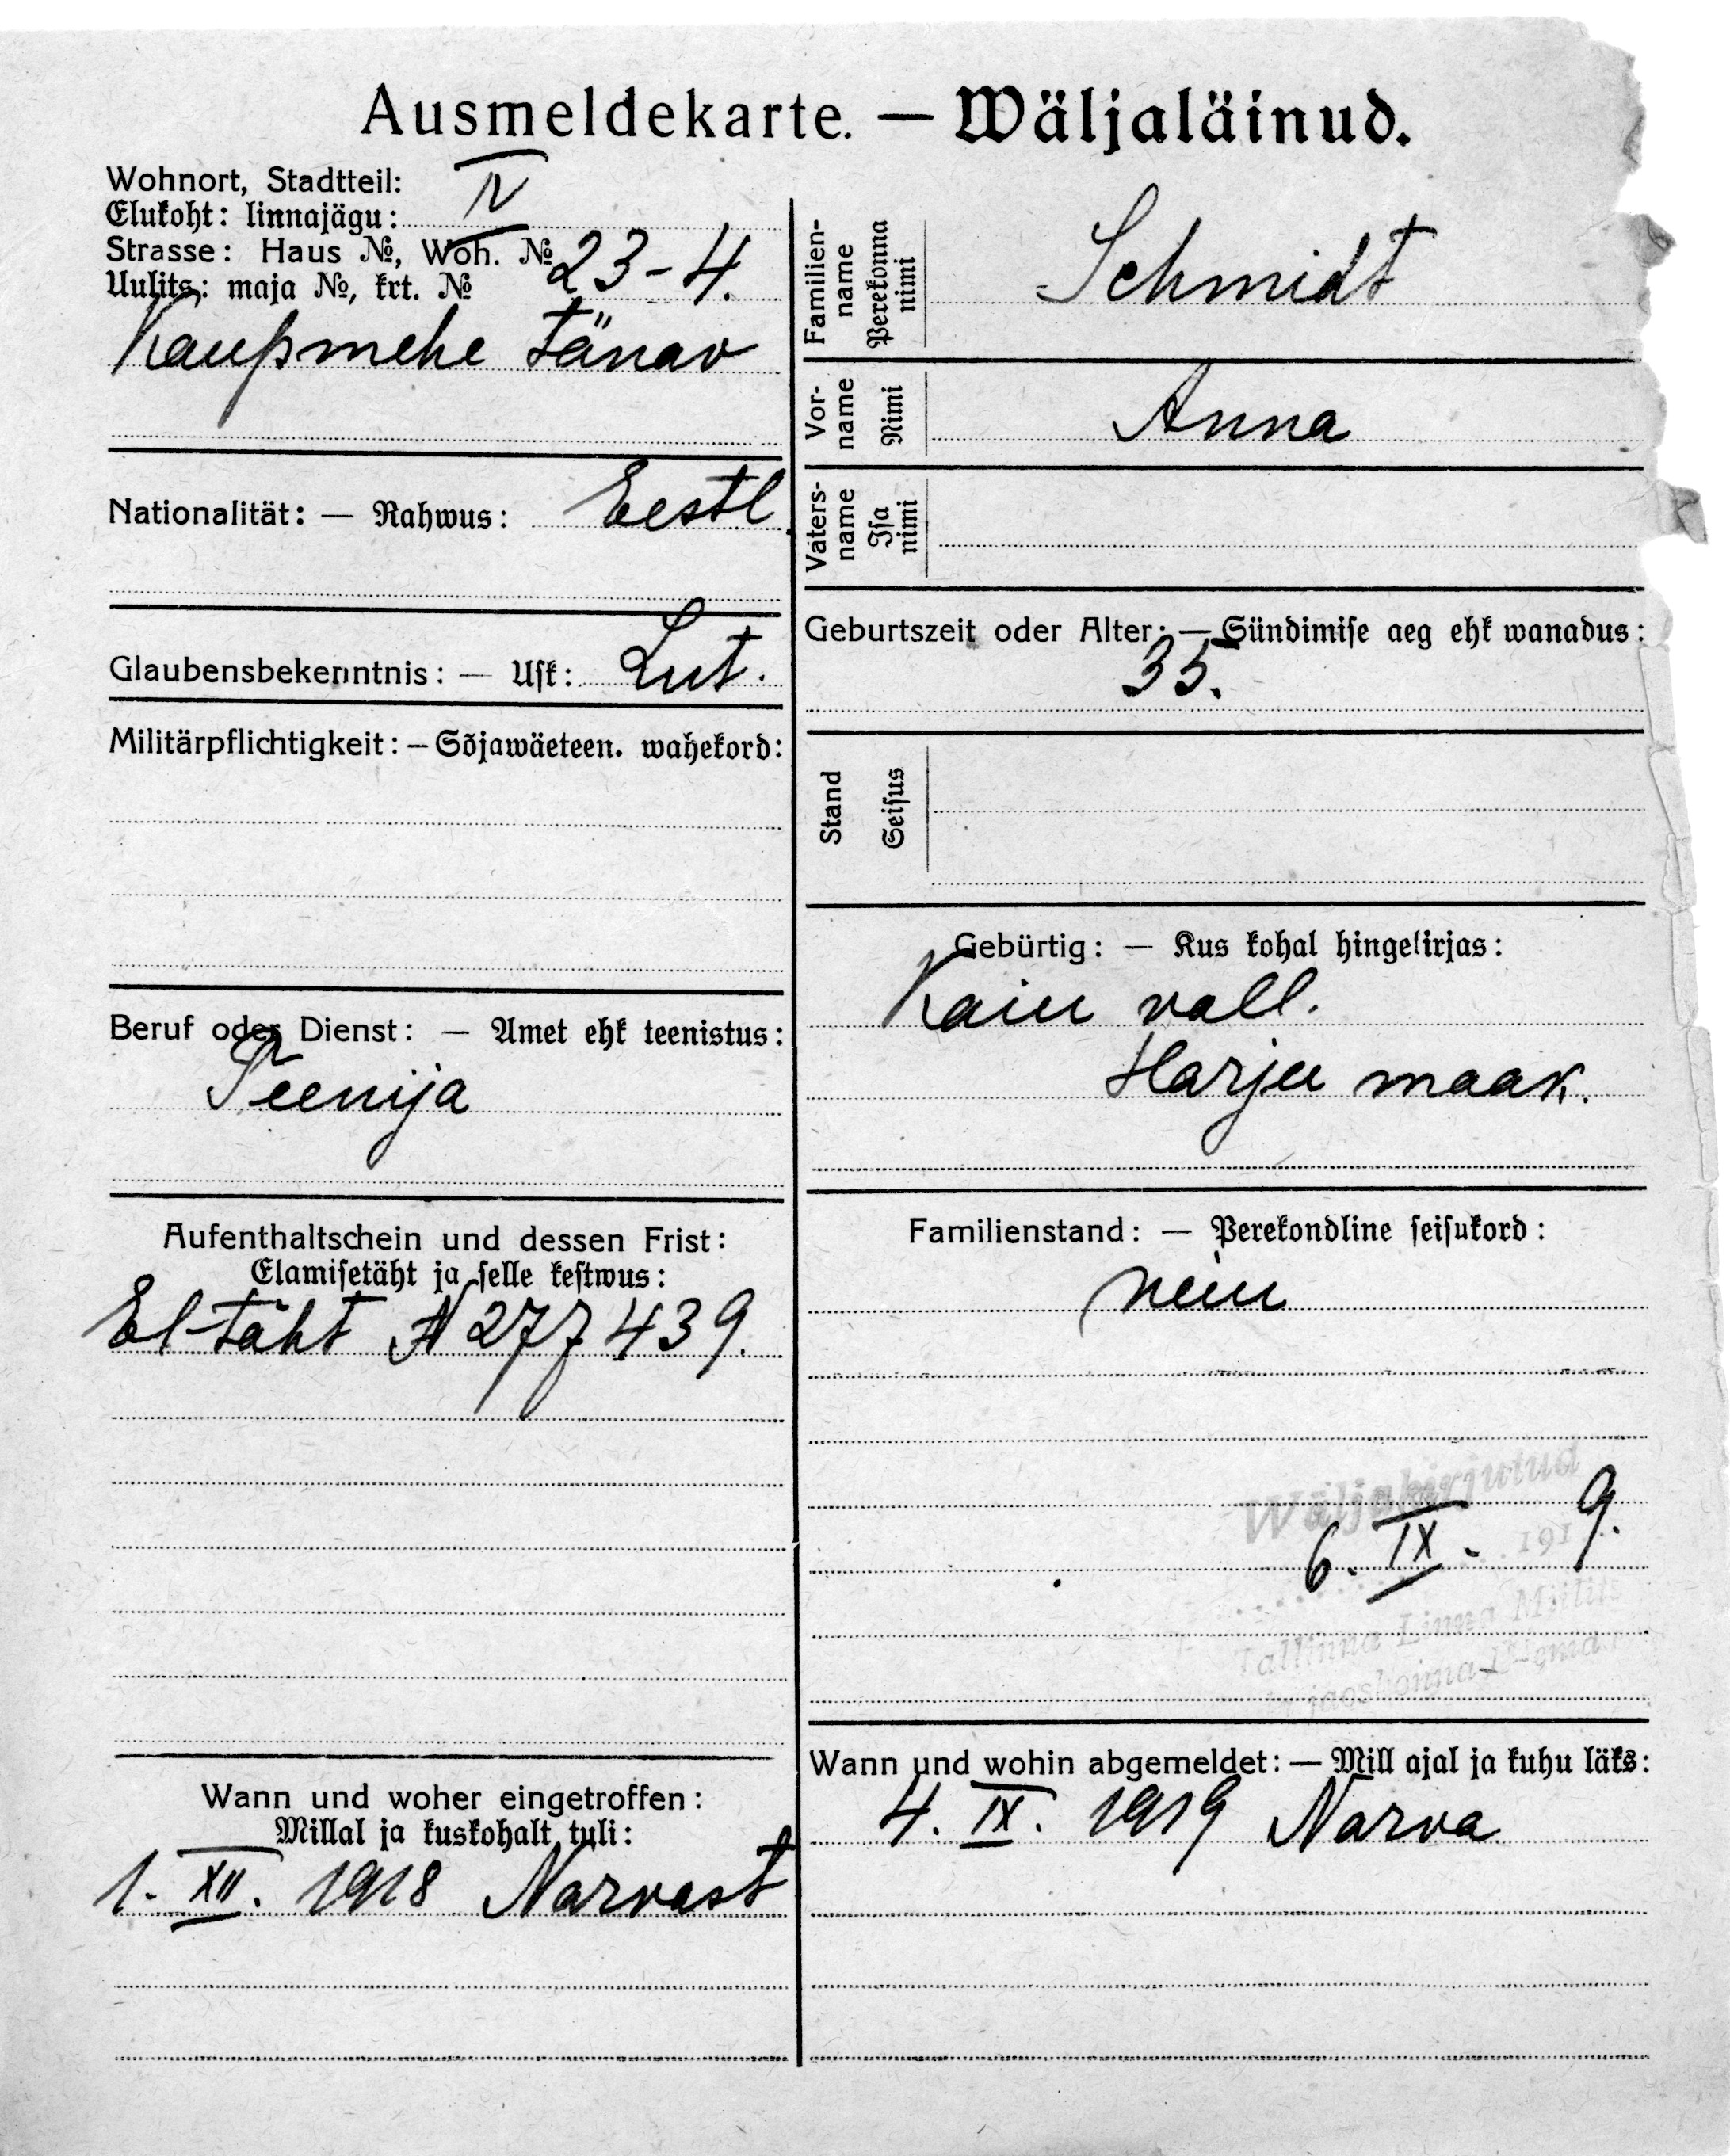 Ausmeldekarte. — Wäljaläinud.
Wohnort, Stadtteil: IV
Elukoht: linnajägu:
Strasse: Haus №, Woh. № 23-4.
Uulits: maja №, krt. №
Kaupmehe tänav
Nationalität: — Rahwus: Eestl.
Glaubensbekenntnis: — Usk: Lut.
Militärpflichtigkeit: — Sõjawäeteen. wahekord:
Beruf oder Dienst: — Amet ehk teenistus:
Teenija
Aufenthaltschein und dessen Frist:
Elamisetäht ja selle kestwus:
El-täht № 277439.
Wann und woher eingetroffen:
Millal ja kuskohalt tuli:
1. XII. 1918 Narvast
Familien-
name
Perekonna
nimi
Schmidt
Vor-
name
Nimi
Anna
Vaters-
name
Isa
nimi
Geburtszeit oder Alter: — Sündimise aeg ehk wanadus:
35.
Stand
Seisus
Gebürtig: — Kus kohal hingekirjas:
vall.
Harju maak.
Familienstand: — Perekondline seisukord:
Wäljakirjutud
6. IX. 1919.
Tallinna Linna
Wann und wohin abgemeldet: — Mill ajal ja kuhu läks:
4. IX. 1919 Narva